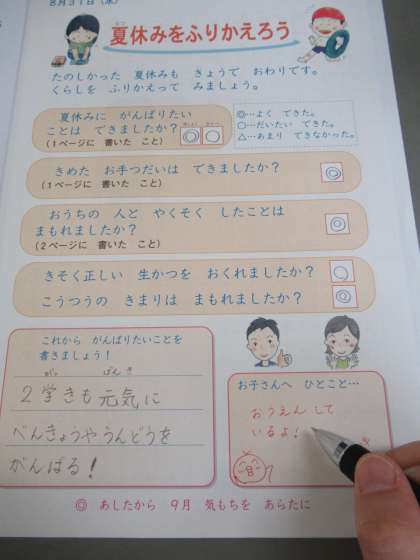 8月31日（水）
夏休みをふりかえろう
たのしかった 夏休みも きょうで おわりです。
くらしを ふりかえって みましょう。
夏休みに がんばりたい
ことは できましたか？
(1ページに 書いた こと)
◎…よく できた。
○…だいたい できた。
△…あまり できなかった。
きめた お手つだいは できましたか？
(1ページに 書いた こと)
おうちの 人と やくそく したことは
まもれましたか？
(2ページに 書いた こと)
きそく正しい 生かつを おくれましたか？
こうつうの きまりは まもれましたか？
これから がんばりたいことを
書きましょう！
2学きも元気に
べんきょうやうんどうを
がんばる！
お子さんへ ひとこと…
おうえんして
いるよ！
◎ あしたから 9月 気もちを あらたに